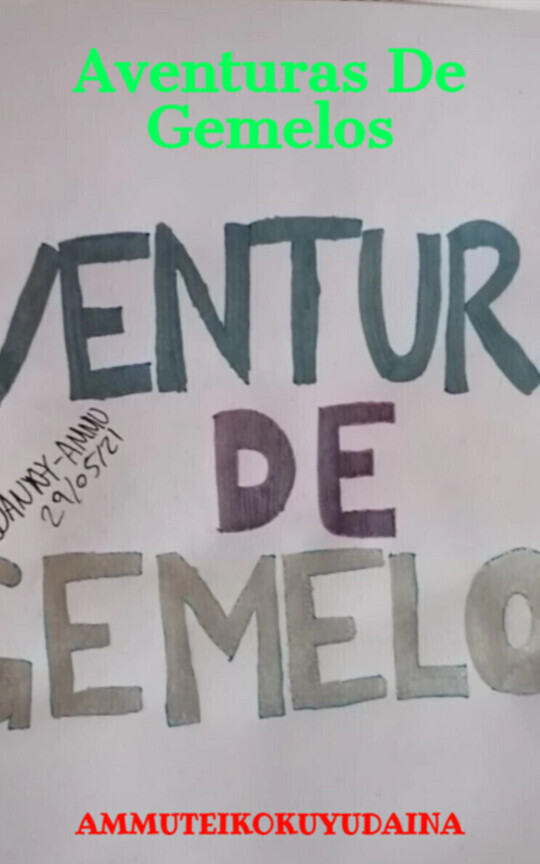 Aventuras De
Gemelos
VENTUR
DE
DANNY-AMMU
29/05/21
GEMELO
AMMUTEIKOKUYUDAINA